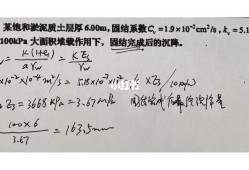 某饱和淤泥质土层厚6.00m,固结系数Cᵥ=1.9×10⁻²cm²/s,kᵥ=5.1
100kPa 大面积堆载作用下,固结完成后的沉降。
= K(1+e₁)/aγw = K Es/γw
×10⁻²×10⁻⁴ m²/s = 5.18×10⁻⁷×10⁻² × Es/10
Es=3668 kPa=3.67m
小红书
100×6/3.67 = 163.5mm